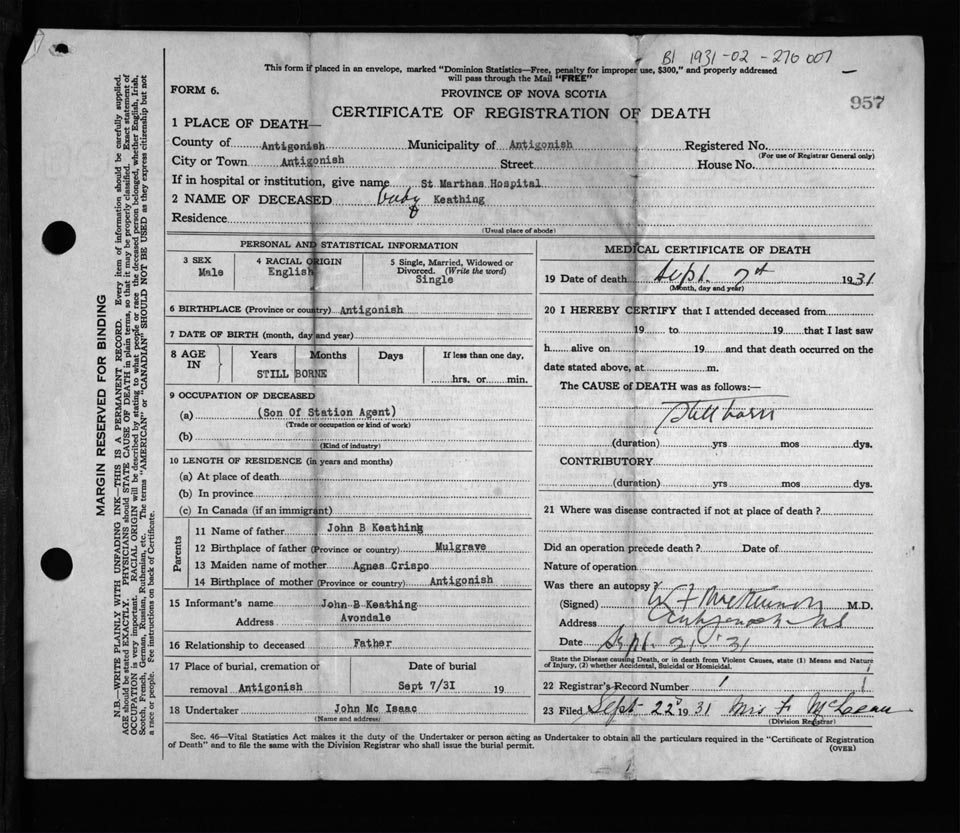 B1 1931-02-270 007
957
This form if placed in an envelope, marked "Dominion Statistics—Free, penalty for improper use, $300," and properly addressed
will pass through the Mail "FREE"
FORM 6.
PROVINCE OF NOVA SCOTIA
CERTIFICATE OF REGISTRATION OF DEATH
1 PLACE OF DEATH—
County of Antigonish Municipality of Antigonish Registered No.
(For use of Registrar General only)
City or Town Antigonish Street House No.
If in hospital or institution, give name St Marthas Hospital
2 NAME OF DECEASED baby Keathing
Residence
(Usual place of abode)
PERSONAL AND STATISTICAL INFORMATION
3 SEX 4 RACIAL ORIGIN 5 Single, Married, Widowed or
Divorced. (Write the word)
Male English Single
6 BIRTHPLACE (Province or country) Antigonish
7 DATE OF BIRTH (month, day and year)
8 AGE IN Years Months Days If less than one day,
hrs. or min.
STILL BORNE
9 OCCUPATION OF DECEASED
(a) (Son Of Station Agent)
(Trade or occupation or kind of work)
(b)
(Kind of industry)
10 LENGTH OF RESIDENCE (in years and months)
(a) At place of death
(b) In province
(c) In Canada (if an immigrant)
Parents
11 Name of father John B Keathing
12 Birthplace of father (Province or country) Mulgrave
13 Maiden name of mother Agnes Crispo
14 Birthplace of mother (Province or country) Antigonish
15 Informant's name John B Keathing
Address Avondale
16 Relationship to deceased Father
17 Place of burial, cremation or Date of burial
removal Antigonish Sept 7/3I 19
18 Undertaker John Mc Isaac
(Name and address)
MEDICAL CERTIFICATE OF DEATH
19 Date of death Sept. 7th 1931
(Month, day and year)
20 I HEREBY CERTIFY that I attended deceased from
19 to 19 that I last saw
h alive on 19 and that death occurred on the
date stated above, at m.
The CAUSE of DEATH was as follows:—
Stillborn
(duration) yrs mos dys.
CONTRIBUTORY
(duration) yrs mos dys.
21 Where was disease contracted if not at place of death?
Did an operation precede death? Date of
Nature of operation
Was there an autopsy?
(Signed) W F McKinnon M.D.
Address Antigonish N.S
Date Sept. 21 '31
State the Disease causing Death, or in death from Violent Causes, state (1) Means and Nature
of Injury, (2) whether Accidental, Suicidal or Homicidal.
22 Registrar's Record Number
23 Filed Sept 22 1931 Mrs F McLean
(Division Registrar)
Sec. 46—Vital Statistics Act makes it the duty of the Undertaker or person acting as Undertaker to obtain all the particulars required in the "Certificate of Registration
of Death" and to file the same with the Division Registrar who shall issue the burial permit.
(OVER)
MARGIN RESERVED FOR BINDING
N.B.—WRITE PLAINLY WITH UNFADING INK—THIS IS A PERMANENT RECORD. Every item of information should be carefully supplied.
AGE should be stated EXACTLY. PHYSICIANS should STATE CAUSE OF DEATH in plain terms, so that it may be properly classified. Exact statement of
OCCUPATION is very important. RACIAL ORIGIN will be described by stating to what people or race the deceased person belonged, whether English, Irish,
Scotch, French, German, Russian, Ruthenian, etc. The terms "AMERICAN" or "CANADIAN" SHOULD NOT BE USED as they express citizenship but not
a race or people. See instructions on back of Certificate.